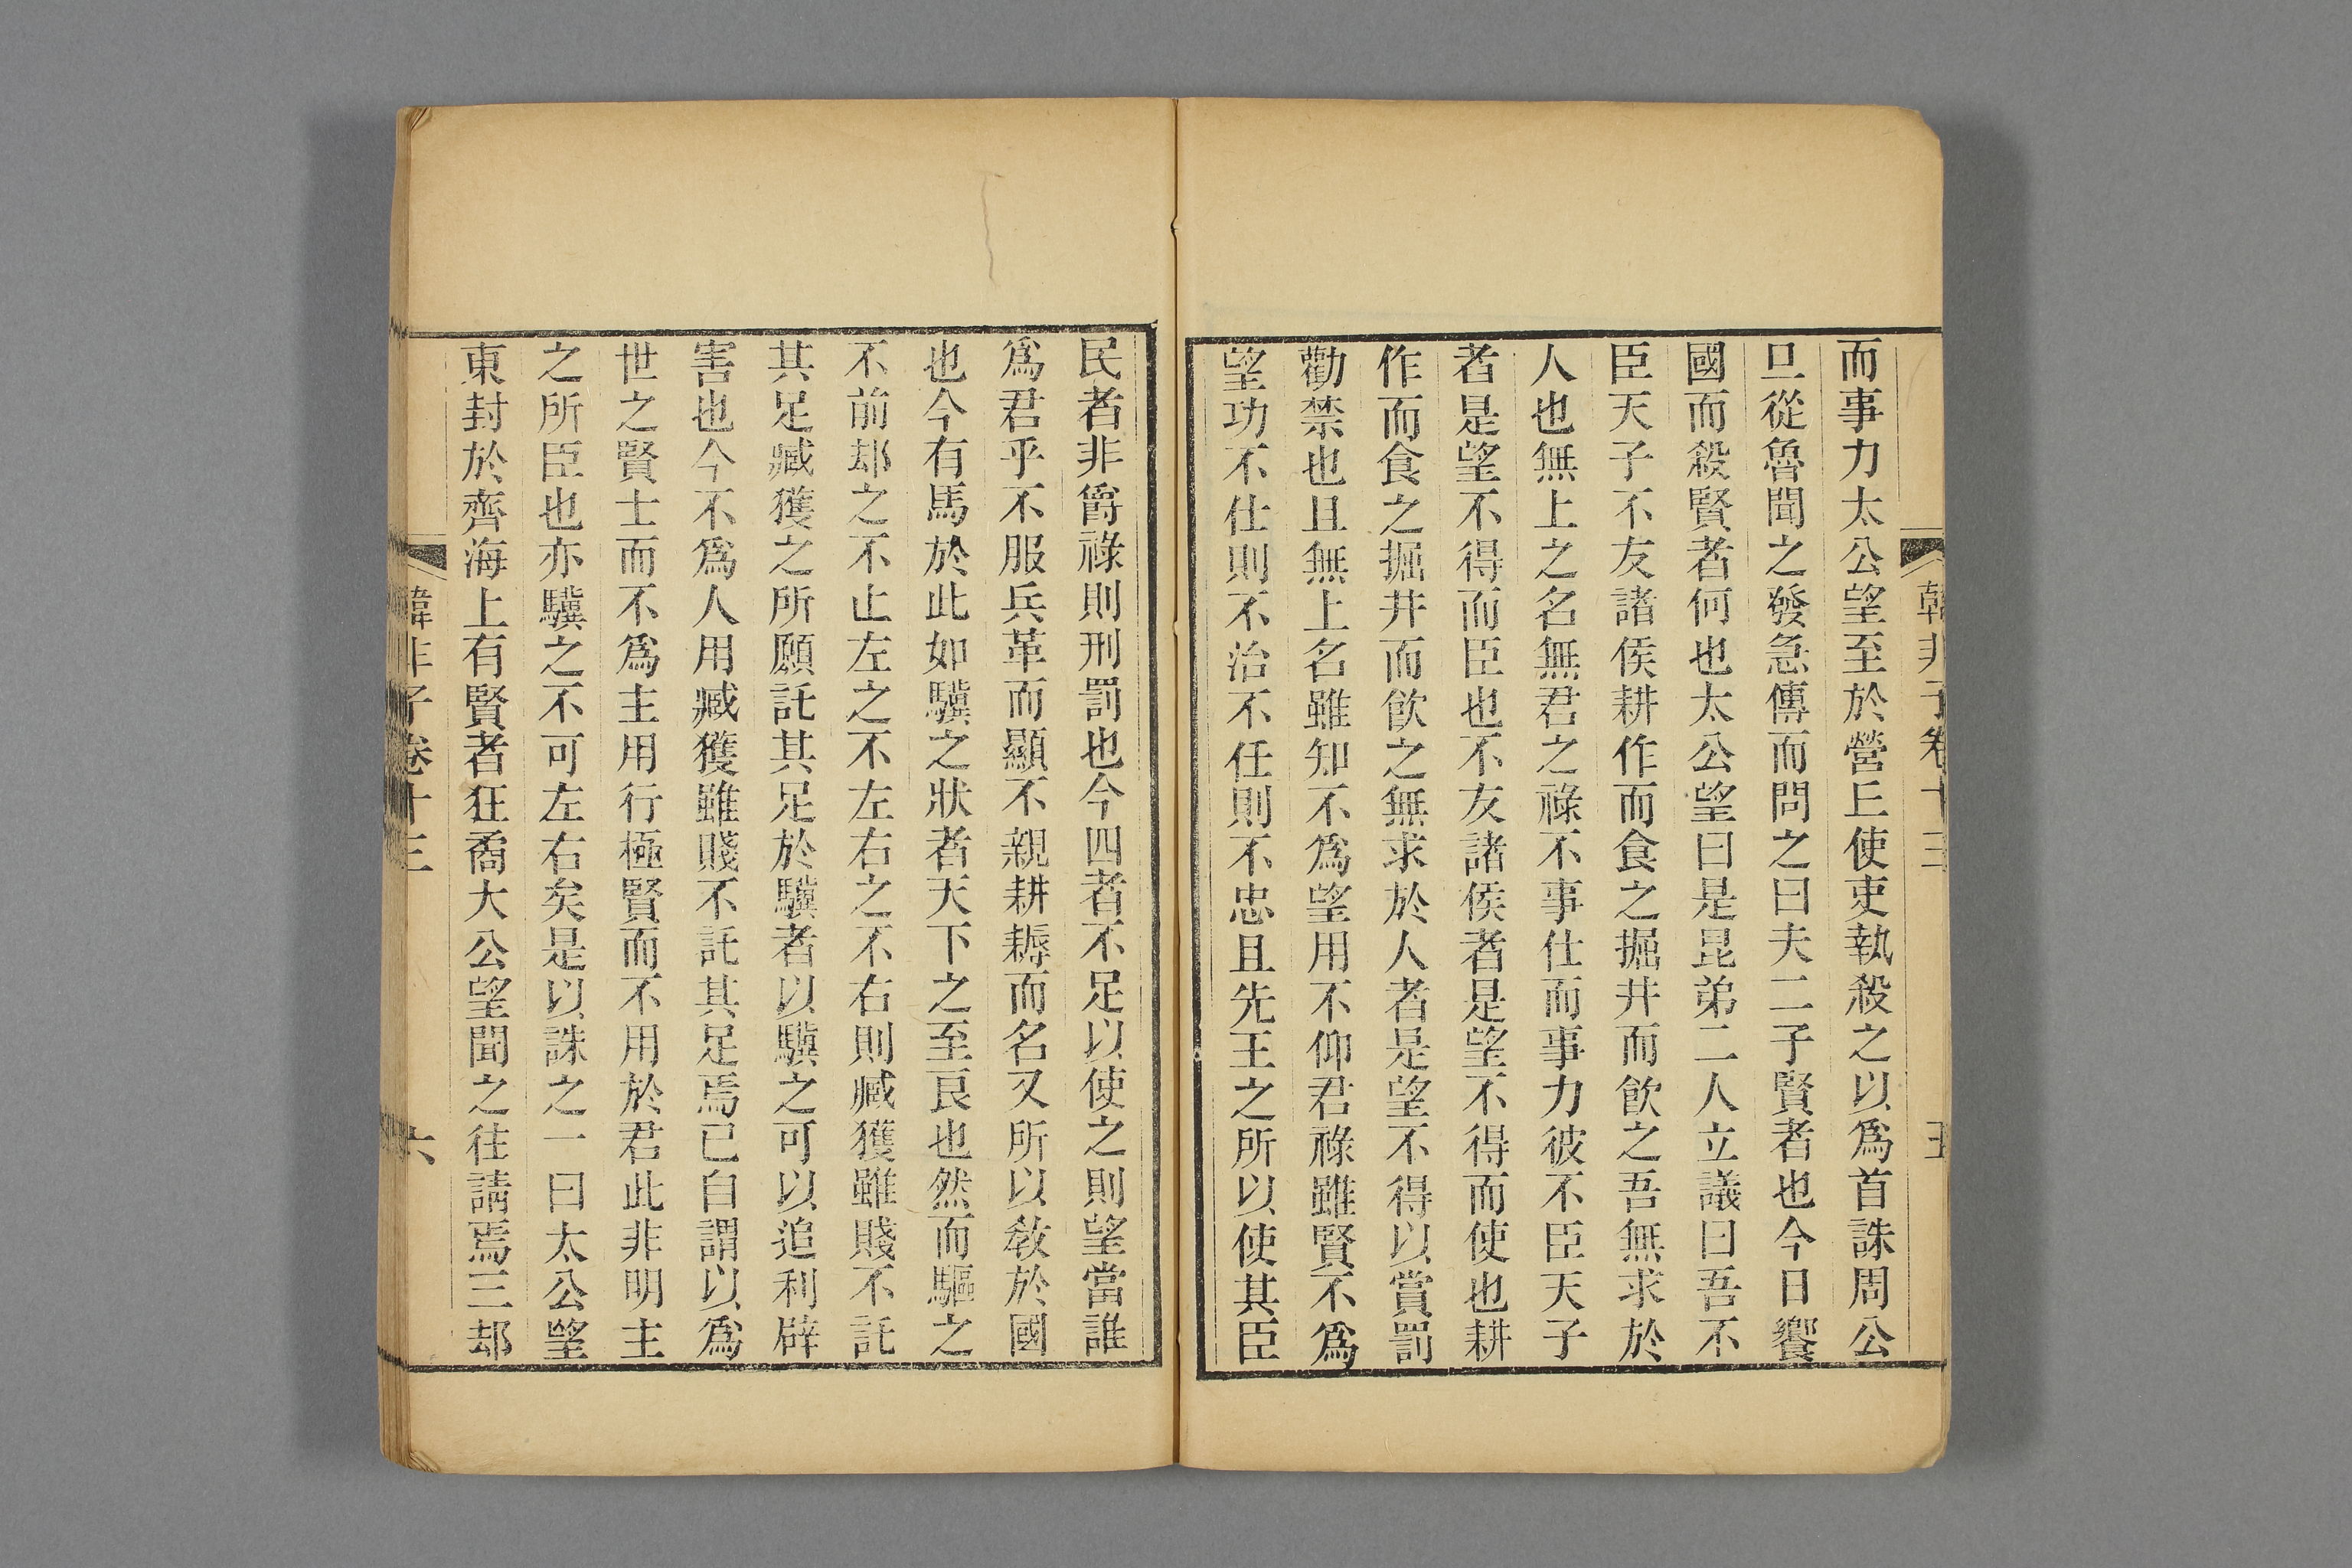 韓非子卷十三
五
而事力太公望至於營丘使吏執殺之以爲首誅周公
旦從魯聞之發急傳而問之曰夫二子賢者也今日饗
國而殺賢者何也太公望曰是昆弟二人立議曰吾不
臣天子不友諸侯耕作而食之掘井而飮之吾無求於
人也無上之名無君之祿不事仕而事力彼不臣天子
者是望不得而臣也不友諸侯者是望不得而使也耕
作而食之掘井而飮之無求於人者是望不得以賞罰
勸禁也且無上名雖知不爲望用不仰君祿雖賢不爲
望功不仕則不治不任則不忠且先王之所以使其臣
民者非爵祿則刑罰也今四者不足以使之則望當誰
爲君乎不服兵革而顯不親耕耨而名又所以敎於國
也今有馬於此如驥之狀者天下之至良也然而驅之
不前却之不止左之不左右之不右則臧獲雖賤不託
其足臧獲之所願託其足於驥者以驥之可以追利辟
害也今不爲人用臧獲雖賤不託其足焉已自謂以爲
世之賢士而不爲主用行極賢而不用於君此非明主
之所臣也亦驥之不可左右矣是以誅之一曰太公望
東封於齊海上有賢者狂矞大公望聞之往請焉三却
韓非子卷十三
六